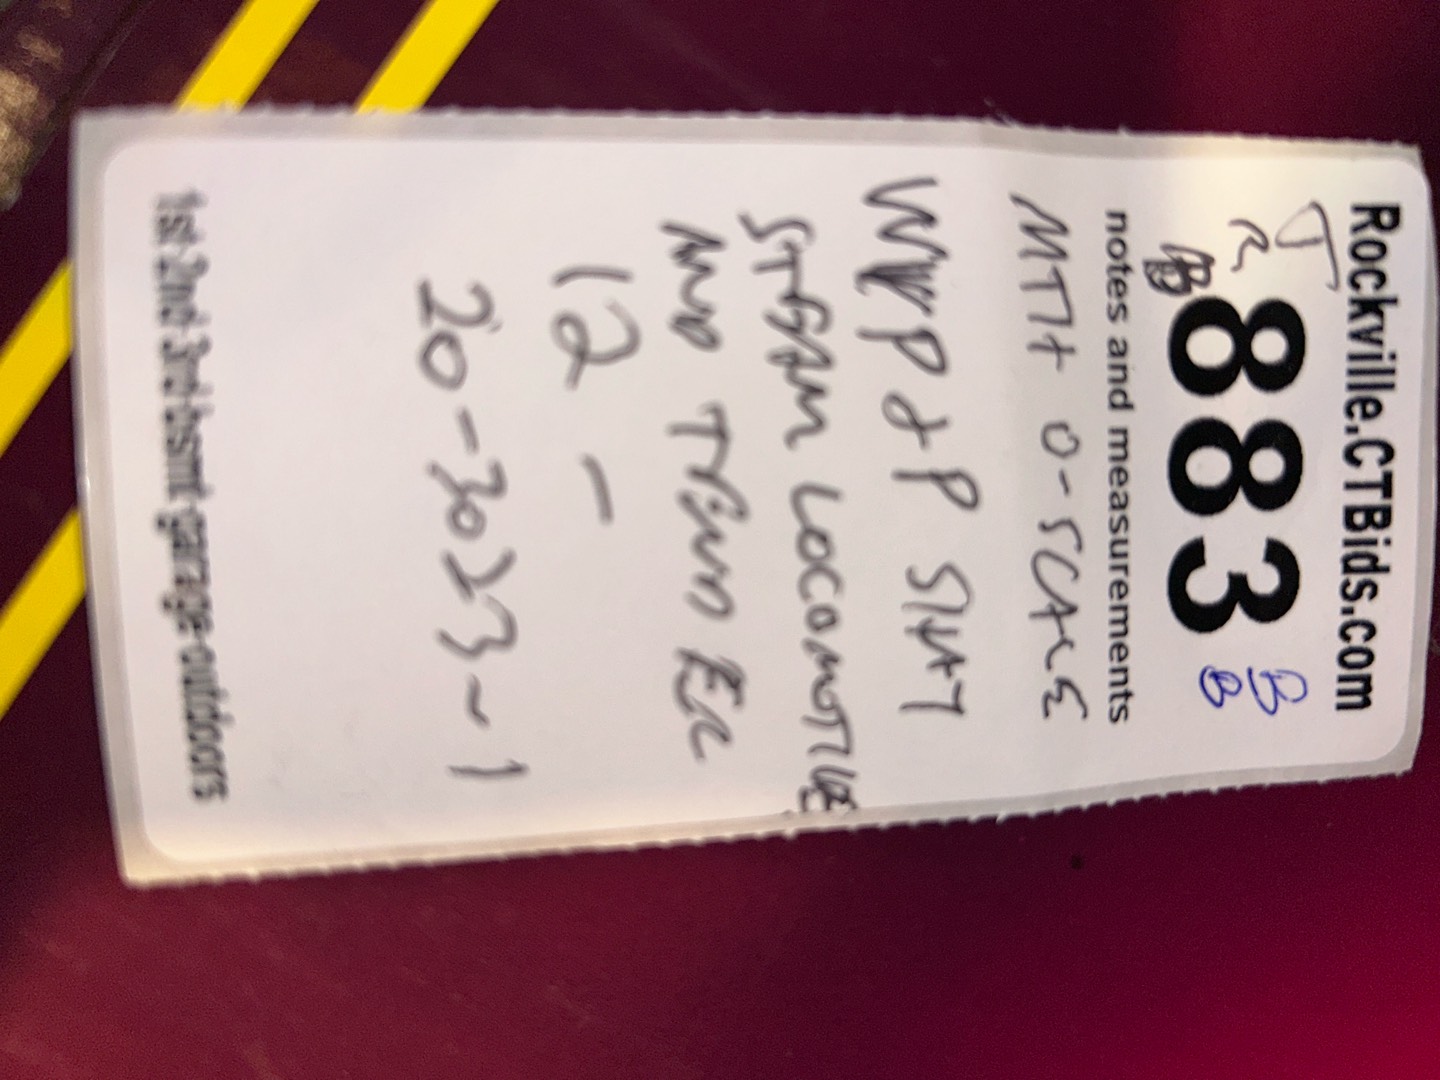 Rockville.CTBids.com
J
R 883 B
B B
notes and measurements
MTH O-SCALE
P & P
STEAM LOCOMOTIVE
AND
12 -
20-3023-1
1st-2nd-3rd-bsmt-garage-outdoors